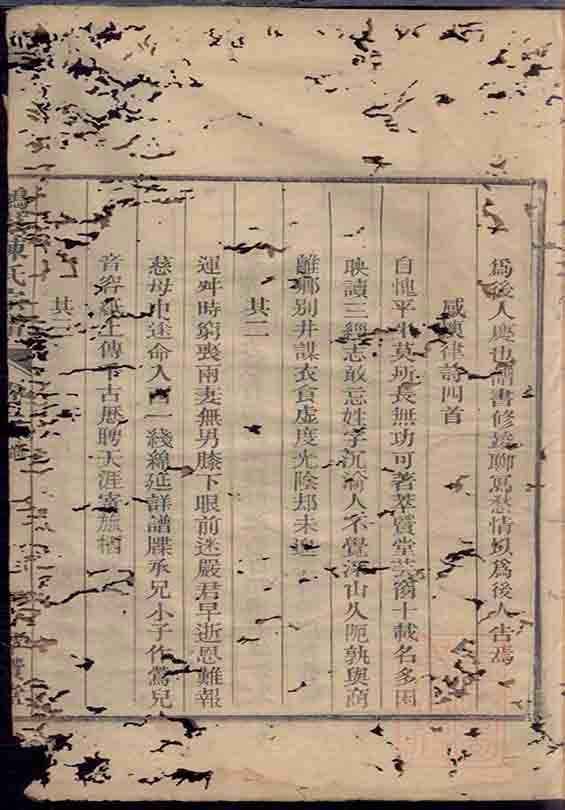 為後人慶也譜書修竣聊寫愁情以為後人告焉
感懷律詩四首
自愧平生莫所長無功可著萃賢堂芸窗十載名多困
映讀三經志敢忘姓字沉淪人不覺深山久阨孰與商
離鄉別井謀衣食虛度光陰却未
其二
運舛時窮喪兩妻無男膝下眼前迷嚴君早逝恩難報
慈母中途命入西一綫綿延詳譜牒承兄小子作鶯兒
音容紙上傳千古歷聘天涯寄旅栖
其三
陳氏